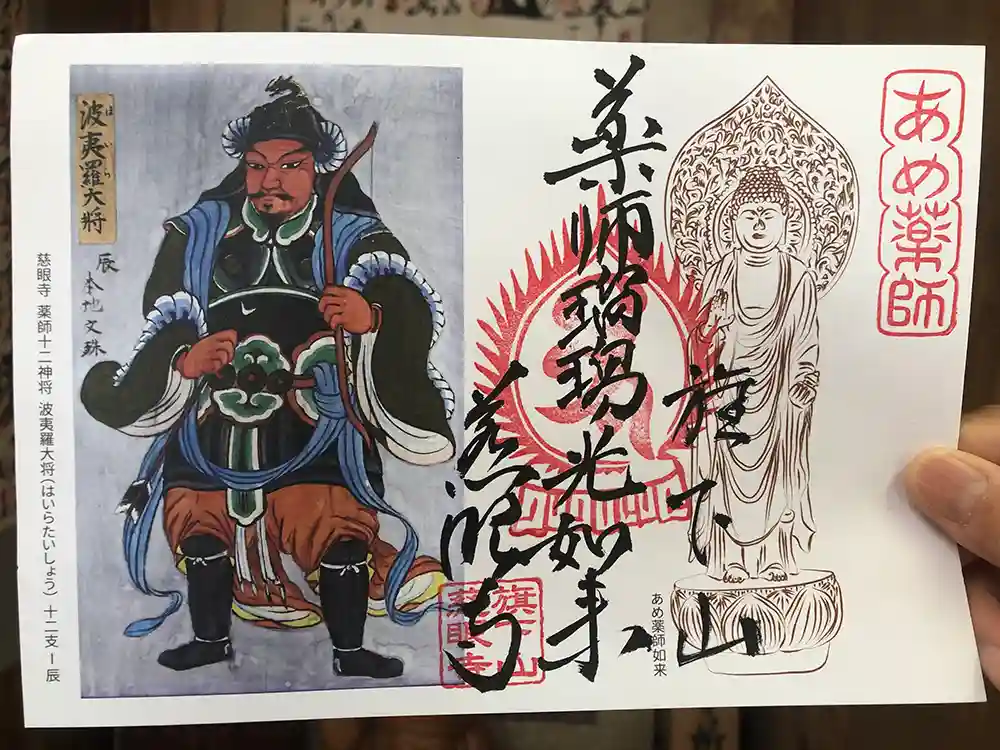 あめ薬師
旗下山
薬師瑠璃光如来
慈眼寺
旗下山
慈眼寺
あめ薬師如来
波夷羅大将
ほ いら
辰 本地文殊
慈眼寺 薬師十二神将 波夷羅大将(はいらたいしょう) 十二支ー辰